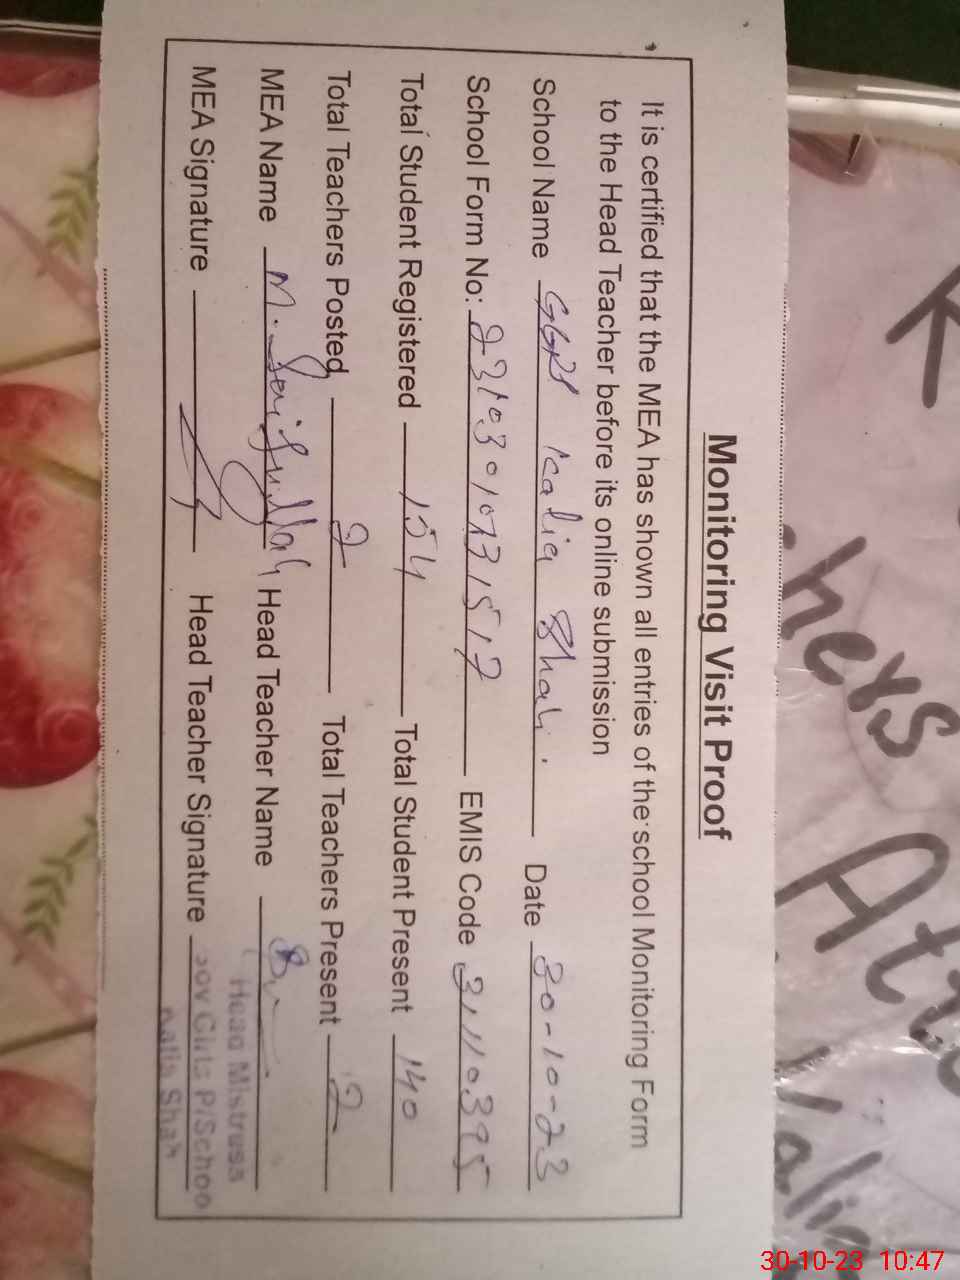 Monitoring Visit Proof
It is certified that the MEA has shown all entries of the school Monitoring Form
to the Head Teacher before its online submission
School Name GGPS Kalia Shah. Date 30-10-23
School Form No: EMIS Code 31110395
Total Student Registered 154 Total Student Present 140
Total Teachers Posted 2 Total Teachers Present 2
MEA Name M. Saifullah Head Teacher Name
MEA Signature Head Teacher Signature
Head Mistress
Gov Girls P/School
Kalia Shah
K
hers
Att
alia
30-10-23 10:47